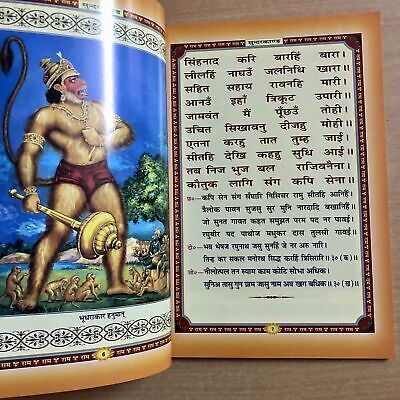 भूधराकार हनुमान्
६
सुन्दरकाण्ड
सिंहनाद करि बारहिं बारा।
लीलहिं नाघउँ जलनिधि खारा॥
सहित सहाय रावनहि मारी।
आनउँ इहाँ त्रिकूट उपारी॥
जामवंत मैं पूँछउँ तोही।
उचित सिखावनु दीजहु मोही॥
एतना करहु तात तुम्ह जाई।
सीतहि देखि कहहु सुधि आई॥
तब निज भुज बल राजिवनैना।
कौतुक लागि संग कपि सेना॥
छं०—कपि सेन संग सँघारि निसिचर रामु सीतहि आनिहैं।
त्रैलोक पावन सुजसु सुर मुनि नारदादि बखानिहैं॥
जो सुनत गावत कहत समुझत परम पद नर पावई।
रघुबीर पद पाथोज मधुकर दास तुलसी गावई॥
दो०—भव भेषज रघुनाथ जसु सुनहिं जे नर अरु नारि।
तिन्ह कर सकल मनोरथ सिद्ध करहिं त्रिसिरारि॥३०(क)॥
सो०—नीलोत्पल तन स्याम काम कोटि सोभा अधिक।
सुनिअ तासु गुन ग्राम जासु नाम अघ खग बधिक॥३०(ख)॥
७